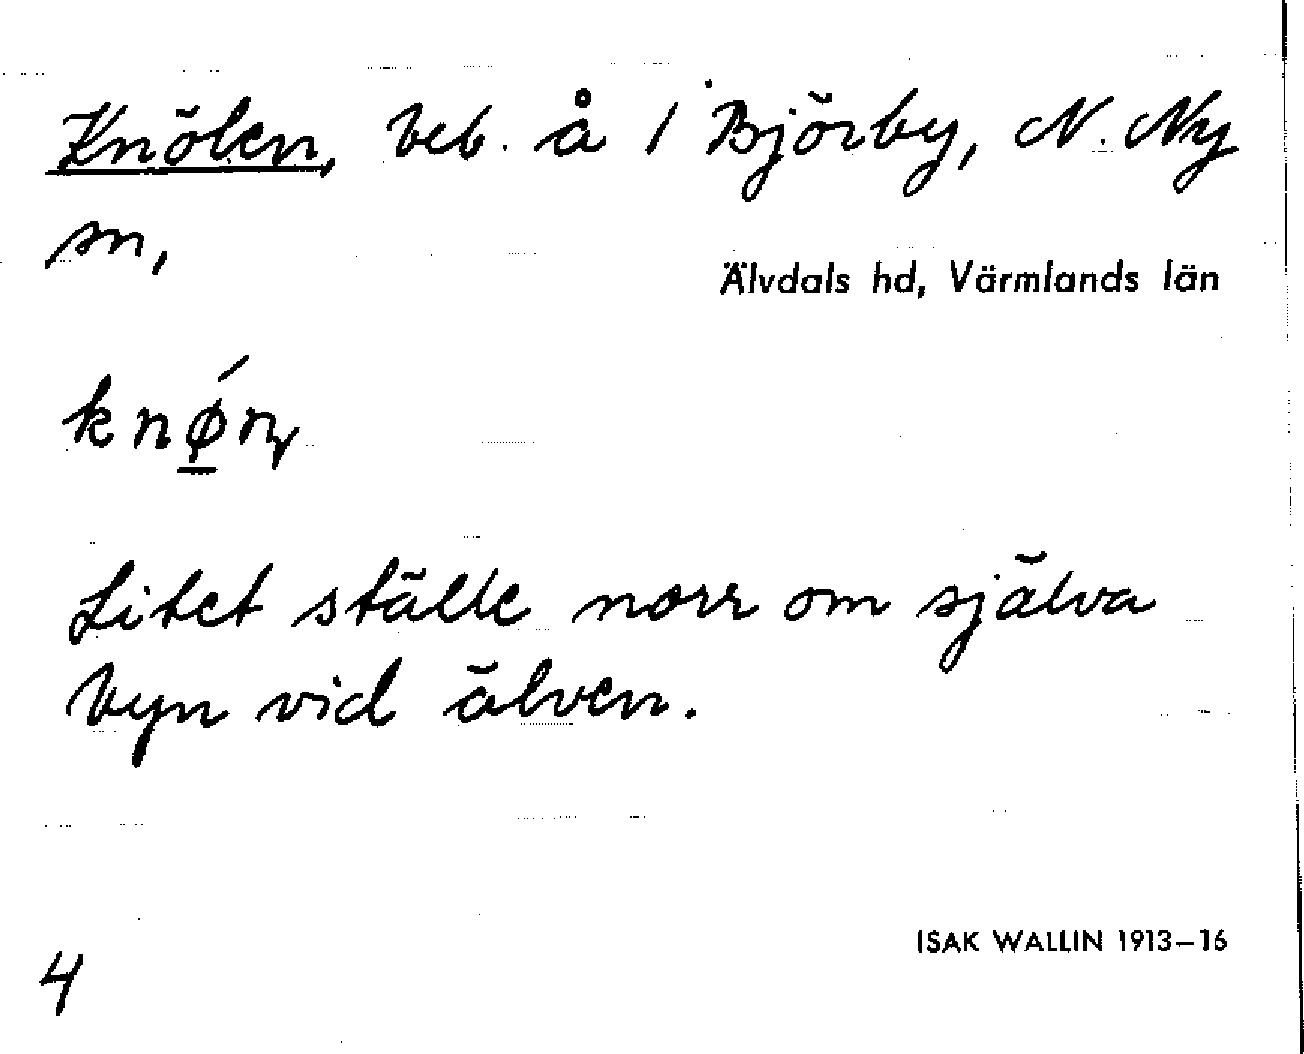 Knölen, beb. å 1 Björby, N. Ny
sn,
Älvdals hd, Värmlands län
knǿ̲n
Litet ställe norr om själva
byn vid älven.
ISAK WALLIN 1913–16
4